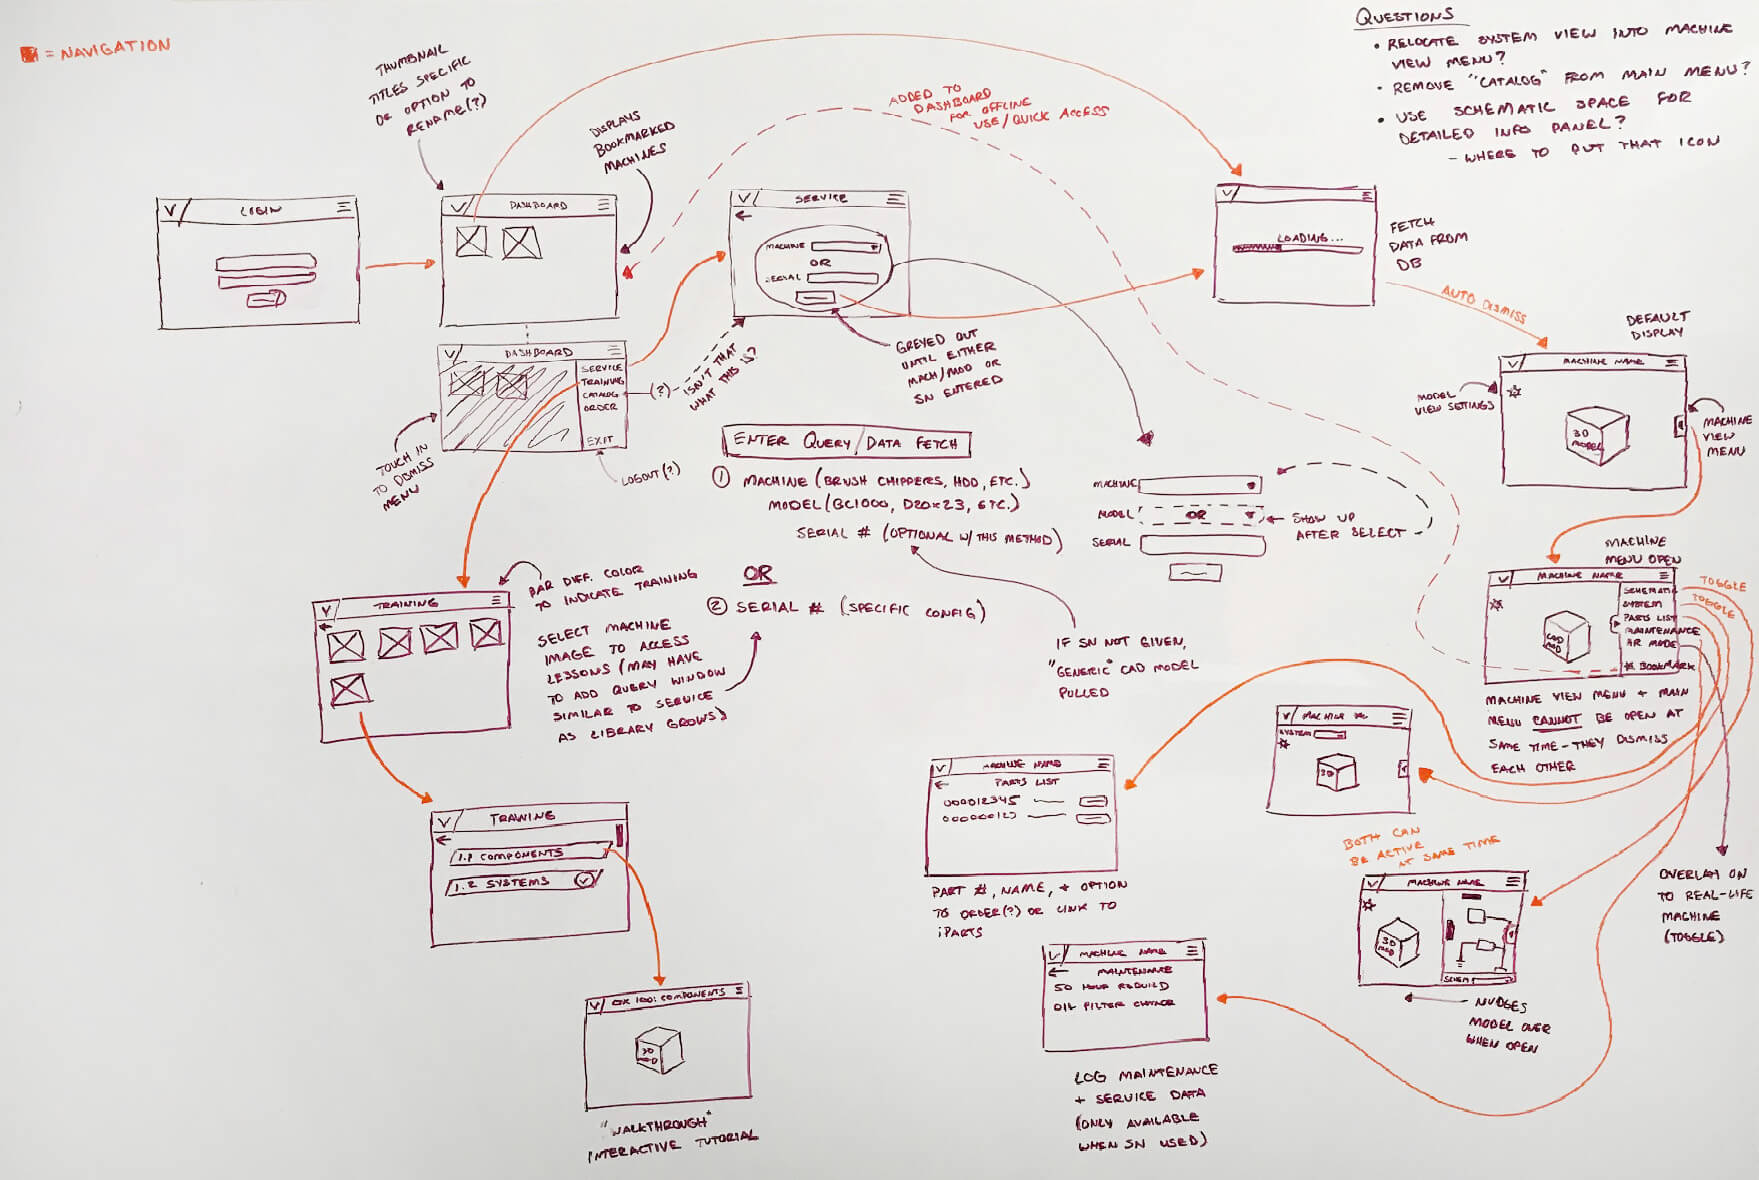 = NAVIGATION
THUMBNAIL
TITLES SPECIFIC
OR OPTION TO
RENAME(?)
DISPLAYS
BOOKMARKED
MACHINES
ADDED TO
DASHBOARD
FOR OFFLINE
USE/QUICK ACCESS
QUESTIONS
• RELOCATE SYSTEM VIEW INTO MACHINE
VIEW MENU?
• REMOVE "CATALOG" FROM MAIN MENU?
• USE SCHEMATIC SPACE FOR
DETAILED INFO PANEL?
- WHERE TO PUT THAT ICON
V LOGIN
V DASHBOARD
V SERVICE
MACHINE
OR
SERIAL
V
LOADING...
FETCH
DATA FROM
DB
AUTO DISMISS
GREYED OUT
UNTIL EITHER
MACH/MOD OR
SN ENTERED
V DASHBOARD
SERVICE
TRAINING
CATALOG
ORDER
EXIT
(?)
ISN'T THAT
WHAT THIS IS?
TOUCH IN
TO DISMISS
MENU
LOGOUT(?)
DEFAULT
DISPLAY
V MACHINE NAME
3D
MODEL
MODEL
VIEW SETTINGS
MACHINE
VIEW
MENU
ENTER QUERY/DATA FETCH
1 MACHINE (BRUSH CHIPPERS, HDD, ETC.)
MODEL (BC1000, D20x23, ETC.)
SERIAL # (OPTIONAL W/THIS METHOD)
OR
2 SERIAL # (SPECIFIC CONFIG)
MACHINE
MODEL OR
SERIAL
SHOW UP
AFTER SELECT
IF SN NOT GIVEN,
"GENERIC" CAD MODEL
PULLED
BAR DIFF. COLOR
TO INDICATE TRAINING
V TRAINING
SELECT MACHINE
IMAGE TO ACCESS
LESSONS (MAY HAVE
TO ADD QUERY WINDOW
SIMILAR TO SERVICE
AS LIBRARY GROWS)
MACHINE
MENU OPEN
V MACHINE NAME
CAD
MOD
SCHEMATIC
SYSTEM
PARTS LIST
MAINTENANCE
AR MODE
* BOOKMARK
TOGGLE
TOGGLE
MACHINE VIEW MENU + MAIN
MENU CANNOT BE OPEN AT
SAME TIME - THEY DISMISS
EACH OTHER
V MACHINE
SYSTEM
3D
V MACHINE NAME
PARTS LIST
000012345
000000123
PART #, NAME, + OPTION
TO ORDER(?) OR LINK TO
iPARTS
V TRAINING
1.1 COMPONENTS
1.2 SYSTEMS
BOTH CAN
BE ACTIVE
AT SAME TIME
V MACHINE NAME
3D
MOD
SCHEM
NUDGES
MODEL OVER
WHEN OPEN
OVERLAY ON
TO REAL-LIFE
MACHINE
(TOGGLE)
V MACHINE NAME
MAINTENANCE
50 HOUR REBUILD
OIL FILTER CHANGE
LOG MAINTENANCE
+ SERVICE DATA
(ONLY AVAILABLE
WHEN SN USED)
V COMPONENTS
3D
MOD
"WALKTHROUGH"
INTERACTIVE TUTORIAL